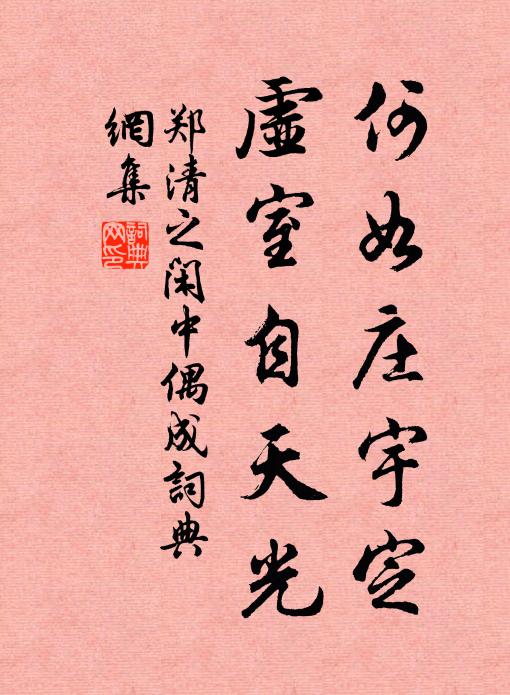 何如庄宇定
虚室自天光
郑清之闲中偶成詞典
網集
詞典網印